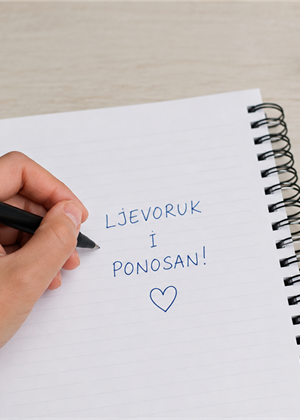 LJEVORUK
İ
PONOSAN!